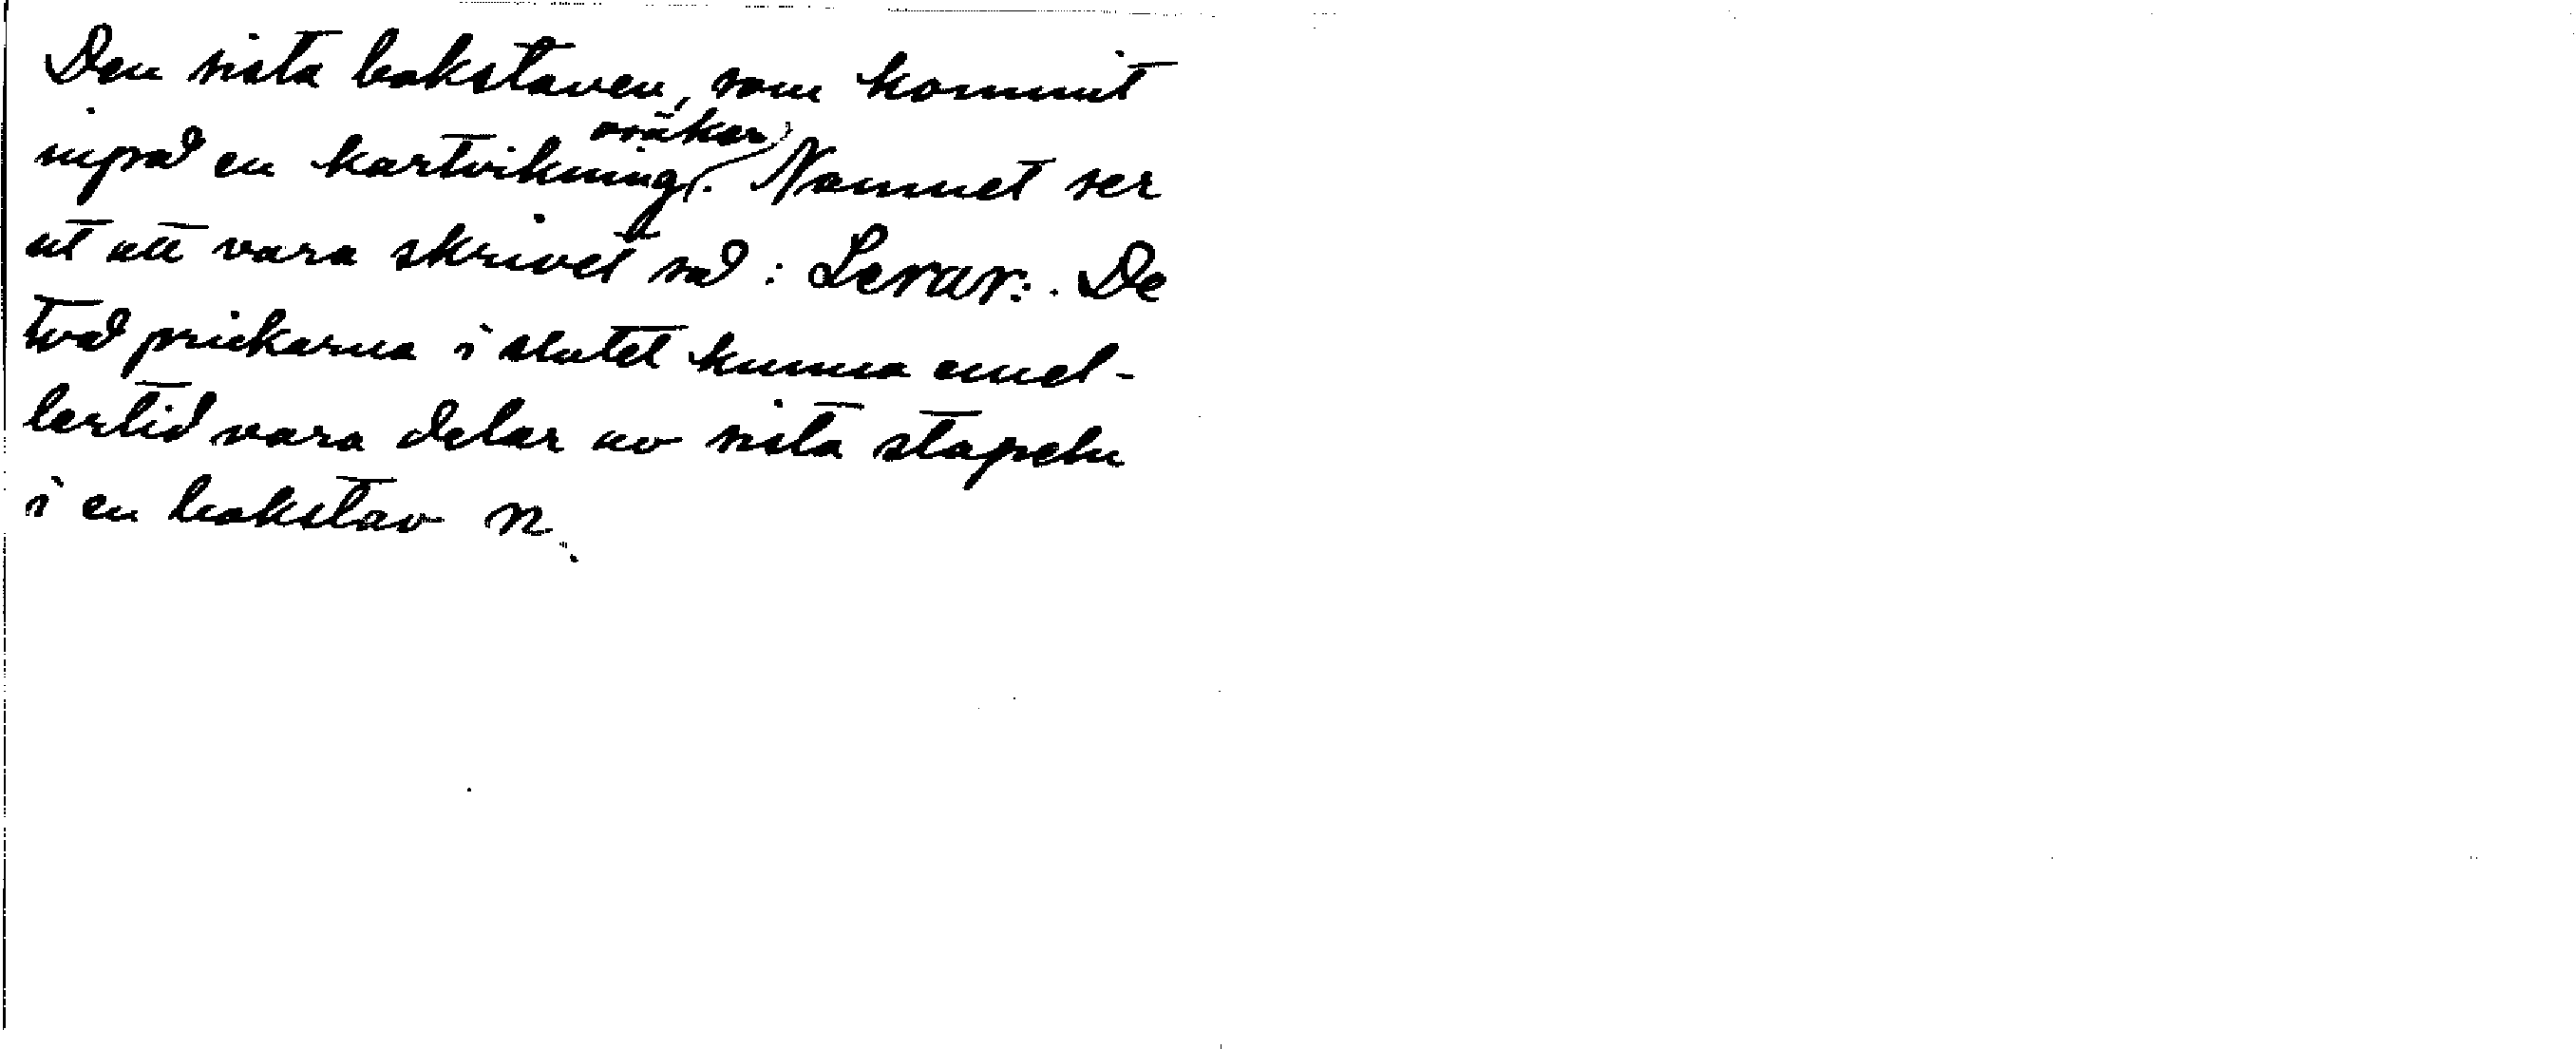 Den sista bokstaven, som kommit
inpå en kartvikning, osäker. Namnet ser
ut att vara skrivet så: Lerar:. De
två prickarna i slutet kunna emel-
lertid vara delar av sista stapeln
i en bokstav n.